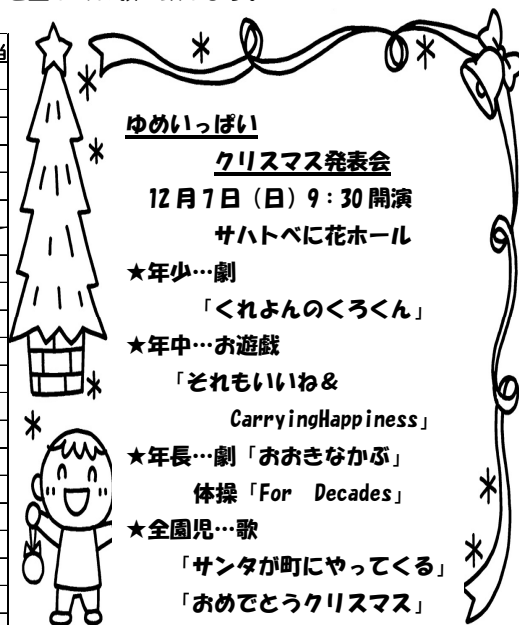 ゆめいっぱい
クリスマス発表会
12月7日（日）9：30開演
サハトべに花ホール
★年少…劇
「くれよんのくろくん」
★年中…お遊戯
「それもいいね＆
CarryingHappiness」
★年長…劇「おおきなかぶ」
体操「For　Decades」
★全園児…歌
「サンタが町にやってくる」
「おめでとうクリスマス」